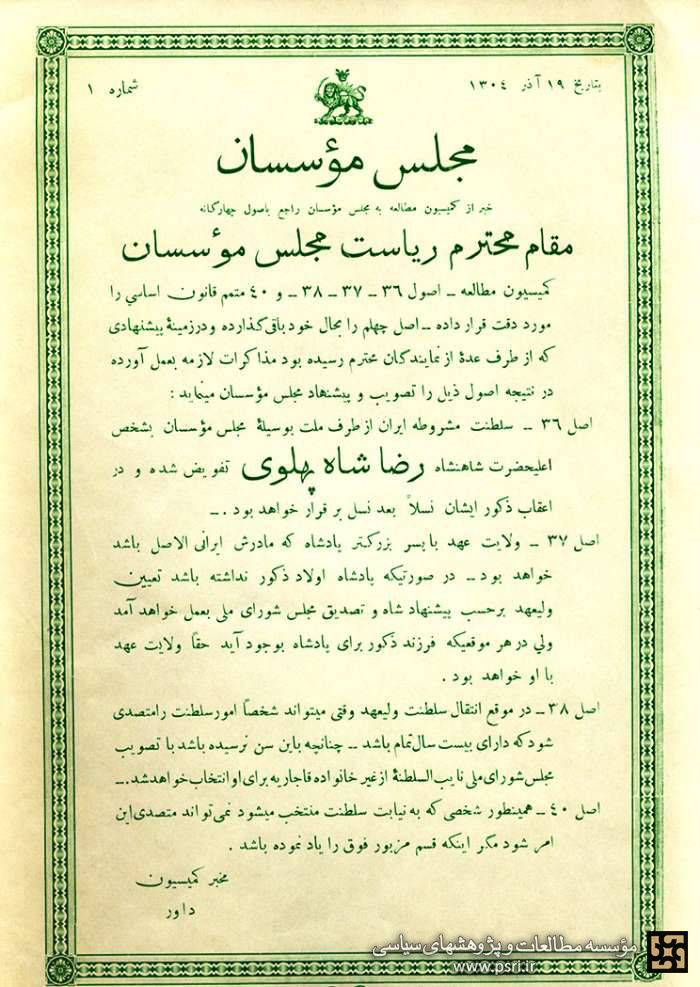 بتاریخ ۱۹ آذر ۱۳۰۴
شماره ۱
مجلس مؤسسان
خبر از کمیسیون مطالعه به مجلس مؤسسان راجع باصول چهارگانه
مقام محترم ریاست مجلس مؤسسان
کمیسیون مطالعه ــ اصول ۳۶ ــ ۳۷ ــ ۳۸ ــ و ۴۰ متمم قانون اساسی را
مورد دقت قرار داده ــ اصل چهلم را بحال خود باقی گذارده و در زمینهٔ پیشنهادی
که از طرف عدهٔ از نمایندگان محترم رسیده بود مذاکرات لازمه بعمل آورده
در نتیجه اصول ذیل را تصویب و پیشنهاد مجلس مؤسسان مینماید :
اصل ۳۶ ــ سلطنت مشروطه ایران از طرف ملت بوسیلهٔ مجلس مؤسسان بشخص
اعلیحضرت شاهنشاه رضا شاه پهلوی تفویض شده و در
اعقاب ذکور ایشان نسلاً بعد نسل برقرار خواهد بود . ــ
اصل ۳۷ ــ ولایت عهد با پسر بزرگتر پادشاه که مادرش ایرانی الاصل باشد
خواهد بود ــ در صورتیکه پادشاه اولاد ذکور نداشته باشد تعیین
ولیعهد برحسب پیشنهاد شاه و تصدیق مجلس شورای ملی بعمل خواهد آمد
ولی در هر موقعیکه فرزند ذکور برای پادشاه بوجود آید حقاً ولایت عهد
با او خواهد بود .
اصل ۳۸ ــ در موقع انتقال سلطنت ولیعهد وقتی میتواند شخصاً امور سلطنت را متصدی
شود که دارای بیست سال تمام باشد ــ چنانچه باین سن نرسیده باشد با تصویب
مجلس شورای ملی نایب السلطنهٔ از غیر خانواده قاجاریه برای او انتخاب خواهد شد . ــ
اصل ۴۰ ــ همینطور شخصی که به نیابت سلطنت منتخب میشود نمی تواند متصدی این
امر شود مگر اینکه قسم مزبور فوق را یاد نموده باشد .
مخبر کمیسیون
داور
مؤسسه مطالعات و پژوهشهای سیاسی
www.psri.ir